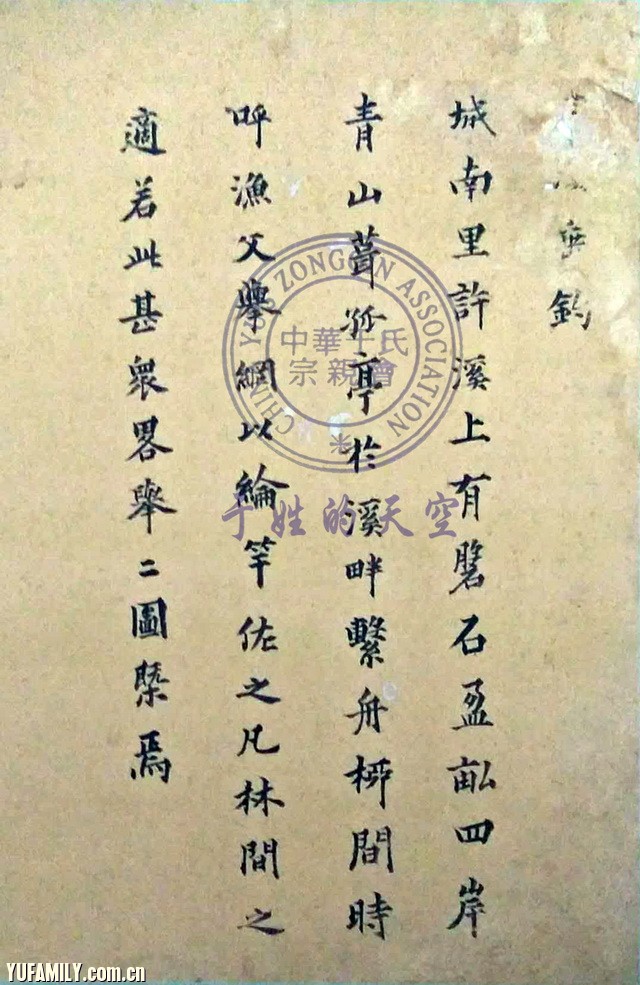 垂釣
城南里許溪上有磐石盈畆四岸
青山葺孤亭於溪畔繫舟桺間時
呼漁父擧網以綸竿佐之凡林間之
適若此甚衆畧舉二圖槩焉
CHINA YU'S ZONGQIN ASSOCIATION
中華于氏
宗親會
于姓的天空
YUFAMILY.com.cn